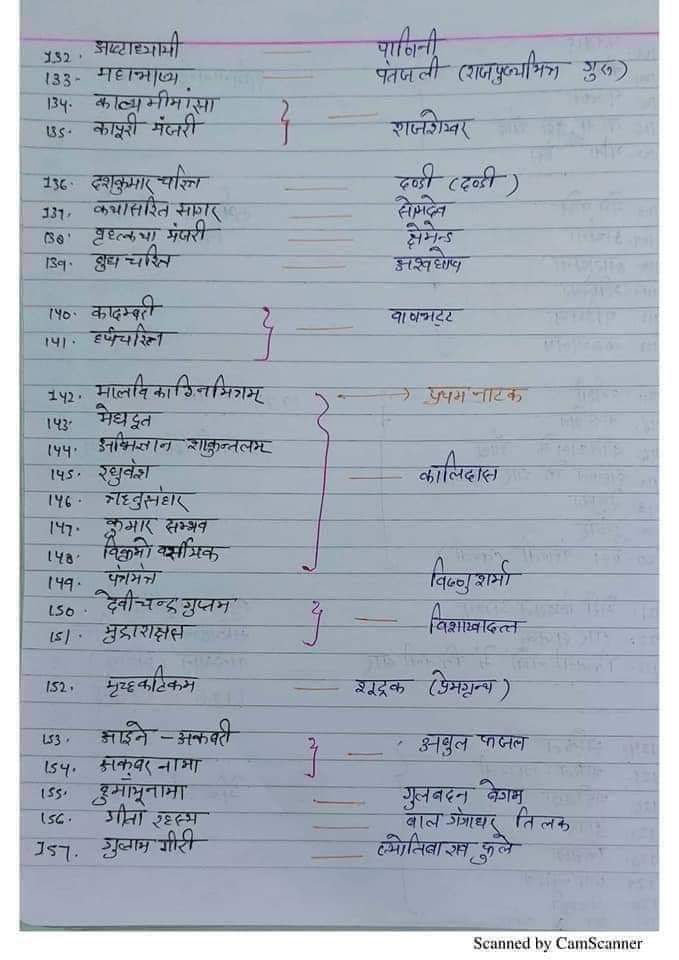 132. अष्टाध्यायी — पाणिनी
133- महाभाष्य — पंतजली (राजपुष्यमित्र गुरू)
134. काव्य मीमांसा
135. कपूरी मंजरी } — राजशेखर
136. दशकुमार चरित्र — दण्डी (दण्डी)
137. कथासरित सागर — सोमदेव
138. वृहत्कथा मंजरी — क्षेमेन्द्र
139. बुध चरित्र — अश्वघोष
140. कादम्बरी
141. हर्षचरित्र } — वाणभट्ट
142. मालविकाग्निमित्रम् → प्रथम नाटक
143. मेघदूत
144. अभिज्ञान शाकुन्तलम
145. रघुवंश — कालिदास
146. ऋतुसंहार
147. कुमार सम्भव
148. विक्रमो
149. पंतमंत्र विष्णु शर्मा
150. देवीचन्द्रगुप्तम
151. मुद्राराक्षस } — विशाखादत्त
152. मृच्छकटिकम — शूद्रक (प्रेमग्रन्थ)
153. आईने - अकबरी
154. अकबर नामा } — अबुल फजल
155. हुमायूनामा — गुलबदन बेगम
156. गीता रहस्य — बाल गंगाधर तिलक
157. गुलाम गीरी — ज्योतिबा राव फुले
Scanned by CamScanner